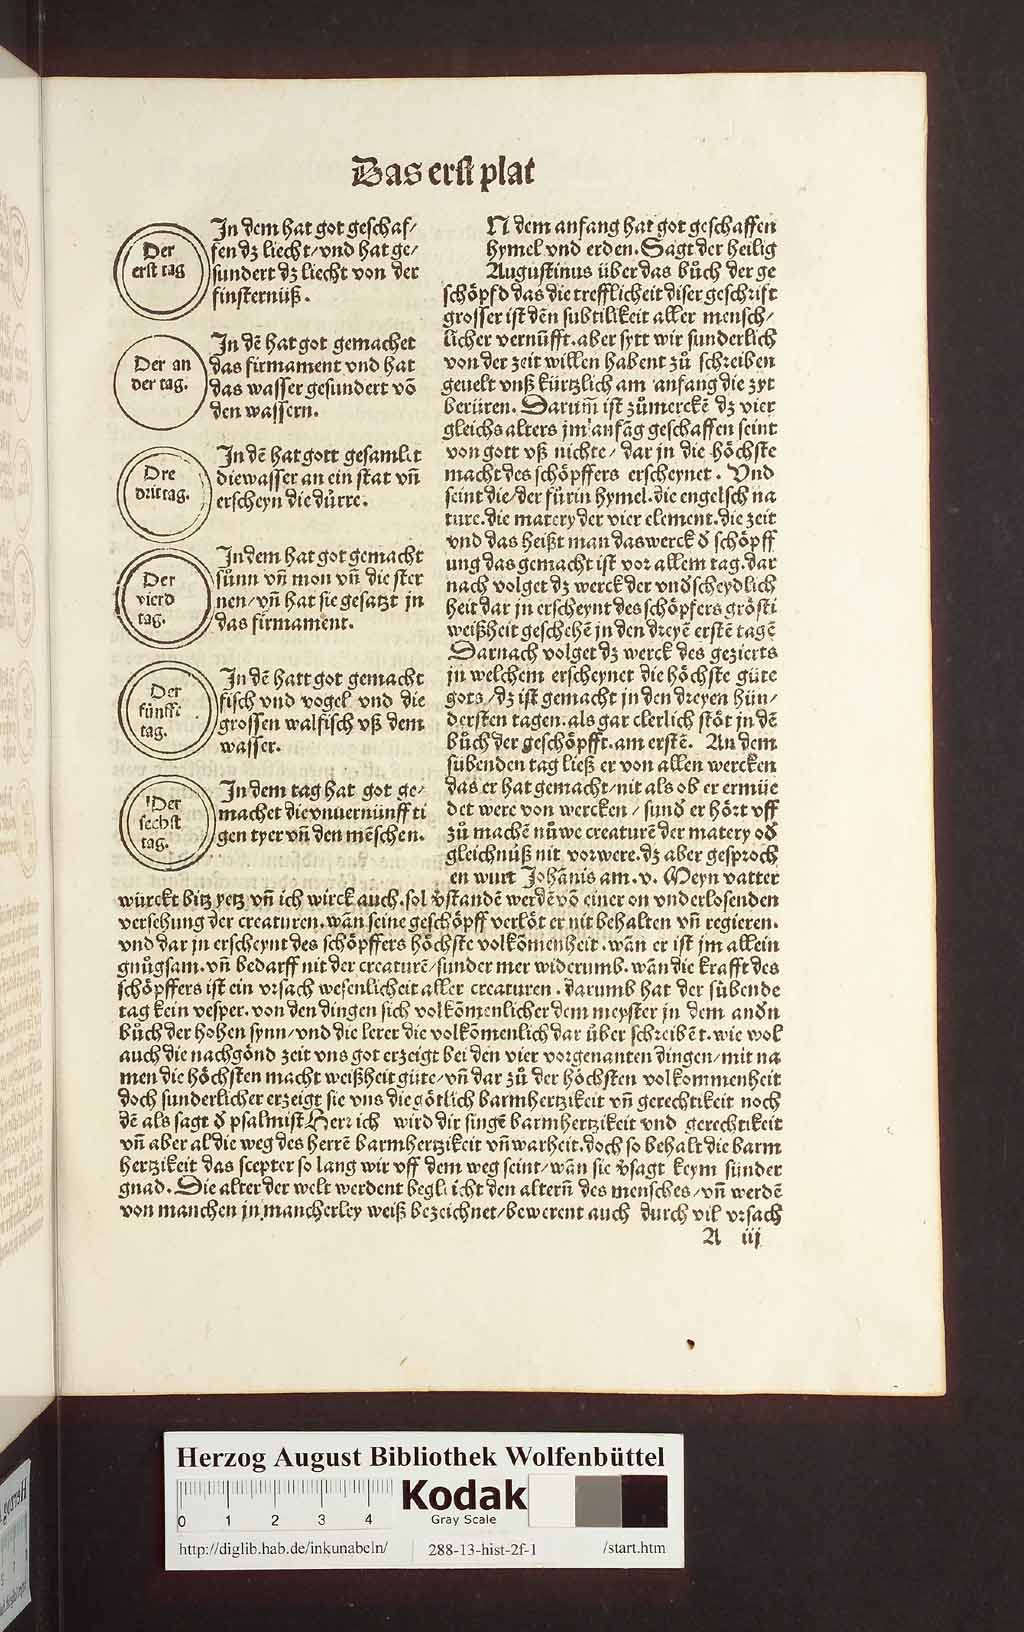 Das erst plat
Der
erst tag
In dem hat got geschaf/
fen dz liecht/vnd hat ge/
sundert dz liecht von der
finsternüß.
Der an
der tag.
In dē hat got gemachet
das firmament vnd hat
das wasser gesundert vō
den wassern.
Dre
drit tag.
In dē hat gott gesamlet
die wasser an ein stat vn̄
erscheyn die dürre.
Der
vierd
tag.
In dem hat got gemacht
sůnn vn̄ mon vn̄ die ster
nen/vn̄ hat sie gesatzt jn
das firmament.
Der
fünfft
tag.
In dē hatt got gemacht
fisch vnd vogel vnd die
grossen walfisch vß dem
wasser.
Der
sechst
tag.
In dem tag hat got ge/
machet die vnuernünffti
gen tyer vn̄ den mēschen.
N dem anfang hat got geschaffen
hymel vnd erden. Sagt der heilig
Augustinus über das bůch der ge
schöpfd das die trefflicheit diser geschrift
grosser ist dēn subtilikeit aller mensch/
licher vernūfft. aber sytt wir sunderlich
von der zeit willen habent zů schreiben
geuelt vnß kürtzlich am anfang die zyt
berüren. Darum̄ ist zůmerckē dz vier
gleichs alters jm anfāg geschaffen seint
von gott vß nichte/ dar jn die höchste
macht des schöpffers erscheynet. Vnd
seint die/der fürin hymel. die engelsch na
ture. die matery der vier element. die zeit
vnd das heißt man das werck đ schöpff
ung das gemacht ist vor allem tag. dar
nach volget dz werck der vnđscheydlich
heit dar jn erscheynt des schöpfers grösti
weißheit geschehē jn den dreyē erstē tagē
Darnach volget dz werck des gezierts
jn welchem erscheynet die höchste güte
gots/dz ist gemacht jn den dreyen hün/
dersten tagen. als gar clerlich stöt jn dē
bůch der geschöpfft. am erstē. An dem
sübenden tag ließ er von allen wercken
das er hat gemacht/nit als ob er ermüe
det were von wercken/ sunđ er hört vff
zů machē nůwe creaturē der matery ođ
gleichnüß nit vorwere. dz aber gesproch
en wurt Johānis am. v. Meyn vatter
würckt bitz yetz vn̄ ich wirck auch. sol v̄standē werdē vō einer on vnderlosenden
versehung der creaturen. wān seine geschöpff verlöt er nit behalten vn̄ regieren.
vnd dar jn erscheynt des schöpffers höchste volkōmenheit. wān er ist jm allein
gnůgsam. vn̄ bedarff nit der creaturē/sunder mer widerumb. wān die krafft des
schöpffers ist ein vrsach wesenlicheit aller creaturen. darumb hat der sübende
tag kein vesper. von den dingen sich volkōmenlicher dem meyster jn dem anđn
bůch der hohen synn/vnd die lerer die volkōmenlich dar über schreibēt. wie wol
auch die nachgönd zeit vns got erzeigt bei den vier vorgenanten dingen/mit na
men die höchsten macht weißheit güte/vn̄ dar zů der höchsten volkommenheit
doch sunderlicher erzeigt sie vns die götlich barmhertzikeit vn̄ gerechtikeit noch
dē als sagt đ psalmist Herr ich wird dir singē barmhertzikeit vnd gerechtikeit
vn̄ aber al die weg des herrē barmhertzikeit vn̄ warheit. doch so behalt die barm
hertzikeit das scepter so lang wir vff dem weg seint/wān sie v̄sagt keym sünder
gnad. Die alter der welt werdent beglicht den altern̄ des mensches/vn̄ werdē
von manchen jn mancherley weiß bezeichnet/bewerent auch durch vil vrsach
A iij
Herzog August Bibliothek Wolfenbüttel
0 1 2 3 4
Kodak
Gray Scale
http://diglib.hab.de/inkunabeln/ 288-13-hist-2f-1 /start.htm